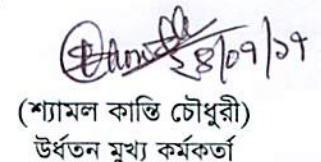 ২৪/০৭/১৭
(শ্যামল কান্তি চৌধুরী)
উর্ধতন মুখ্য কর্মকর্তা